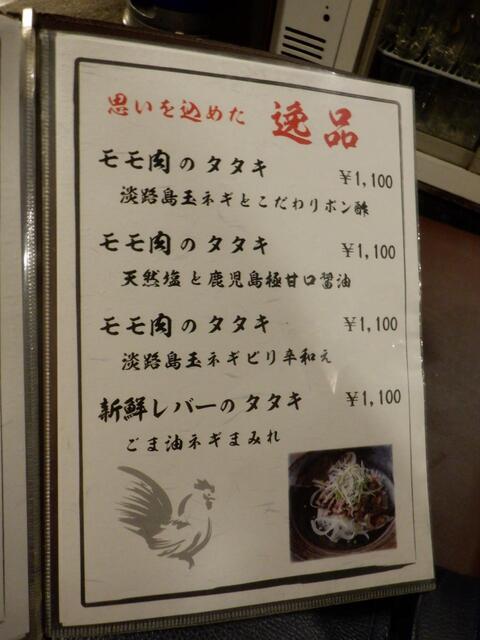 思いを込めた 逸品
モモ肉のタタキ ¥1,100
淡路島玉ネギとこだわりポン酢
モモ肉のタタキ ¥1,100
天然塩と鹿児島極甘口醤油
モモ肉のタタキ ¥1,100
淡路島玉ネギピリ辛和え
新鮮レバーのタタキ ¥1,100
ごま油ネギまみれ